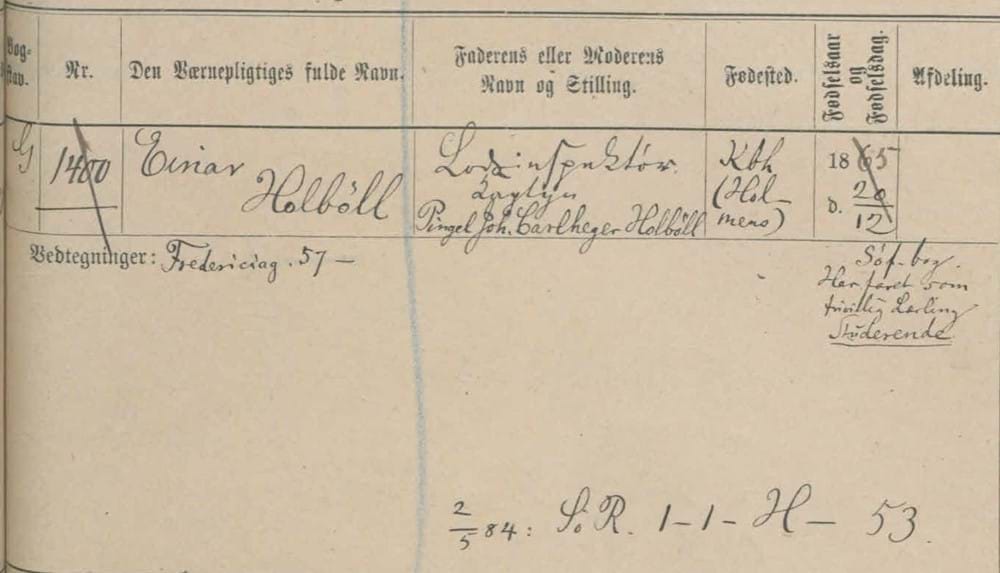 Bog-
stav.
Nr.
Den Værnepligtiges fulde Navn.
Faderens eller Moderens
Navn og Stilling.
Fødested.
Fødselsaar
og
Fødselsdag.
Afdeling.
G
1400
Einar
Holböll
Lodsinspektör
Kaptyn
Pingel Joh. Carl Heger Holböll
Kbh
(Hol-
mens)
1865
d. 20/12
Vedtegninger: Fredericiag. 57 —
Söf. bog.
Har faret som
frivillig Lærling
Studerende
2/5 84: S. R. 1-1- H - 53.